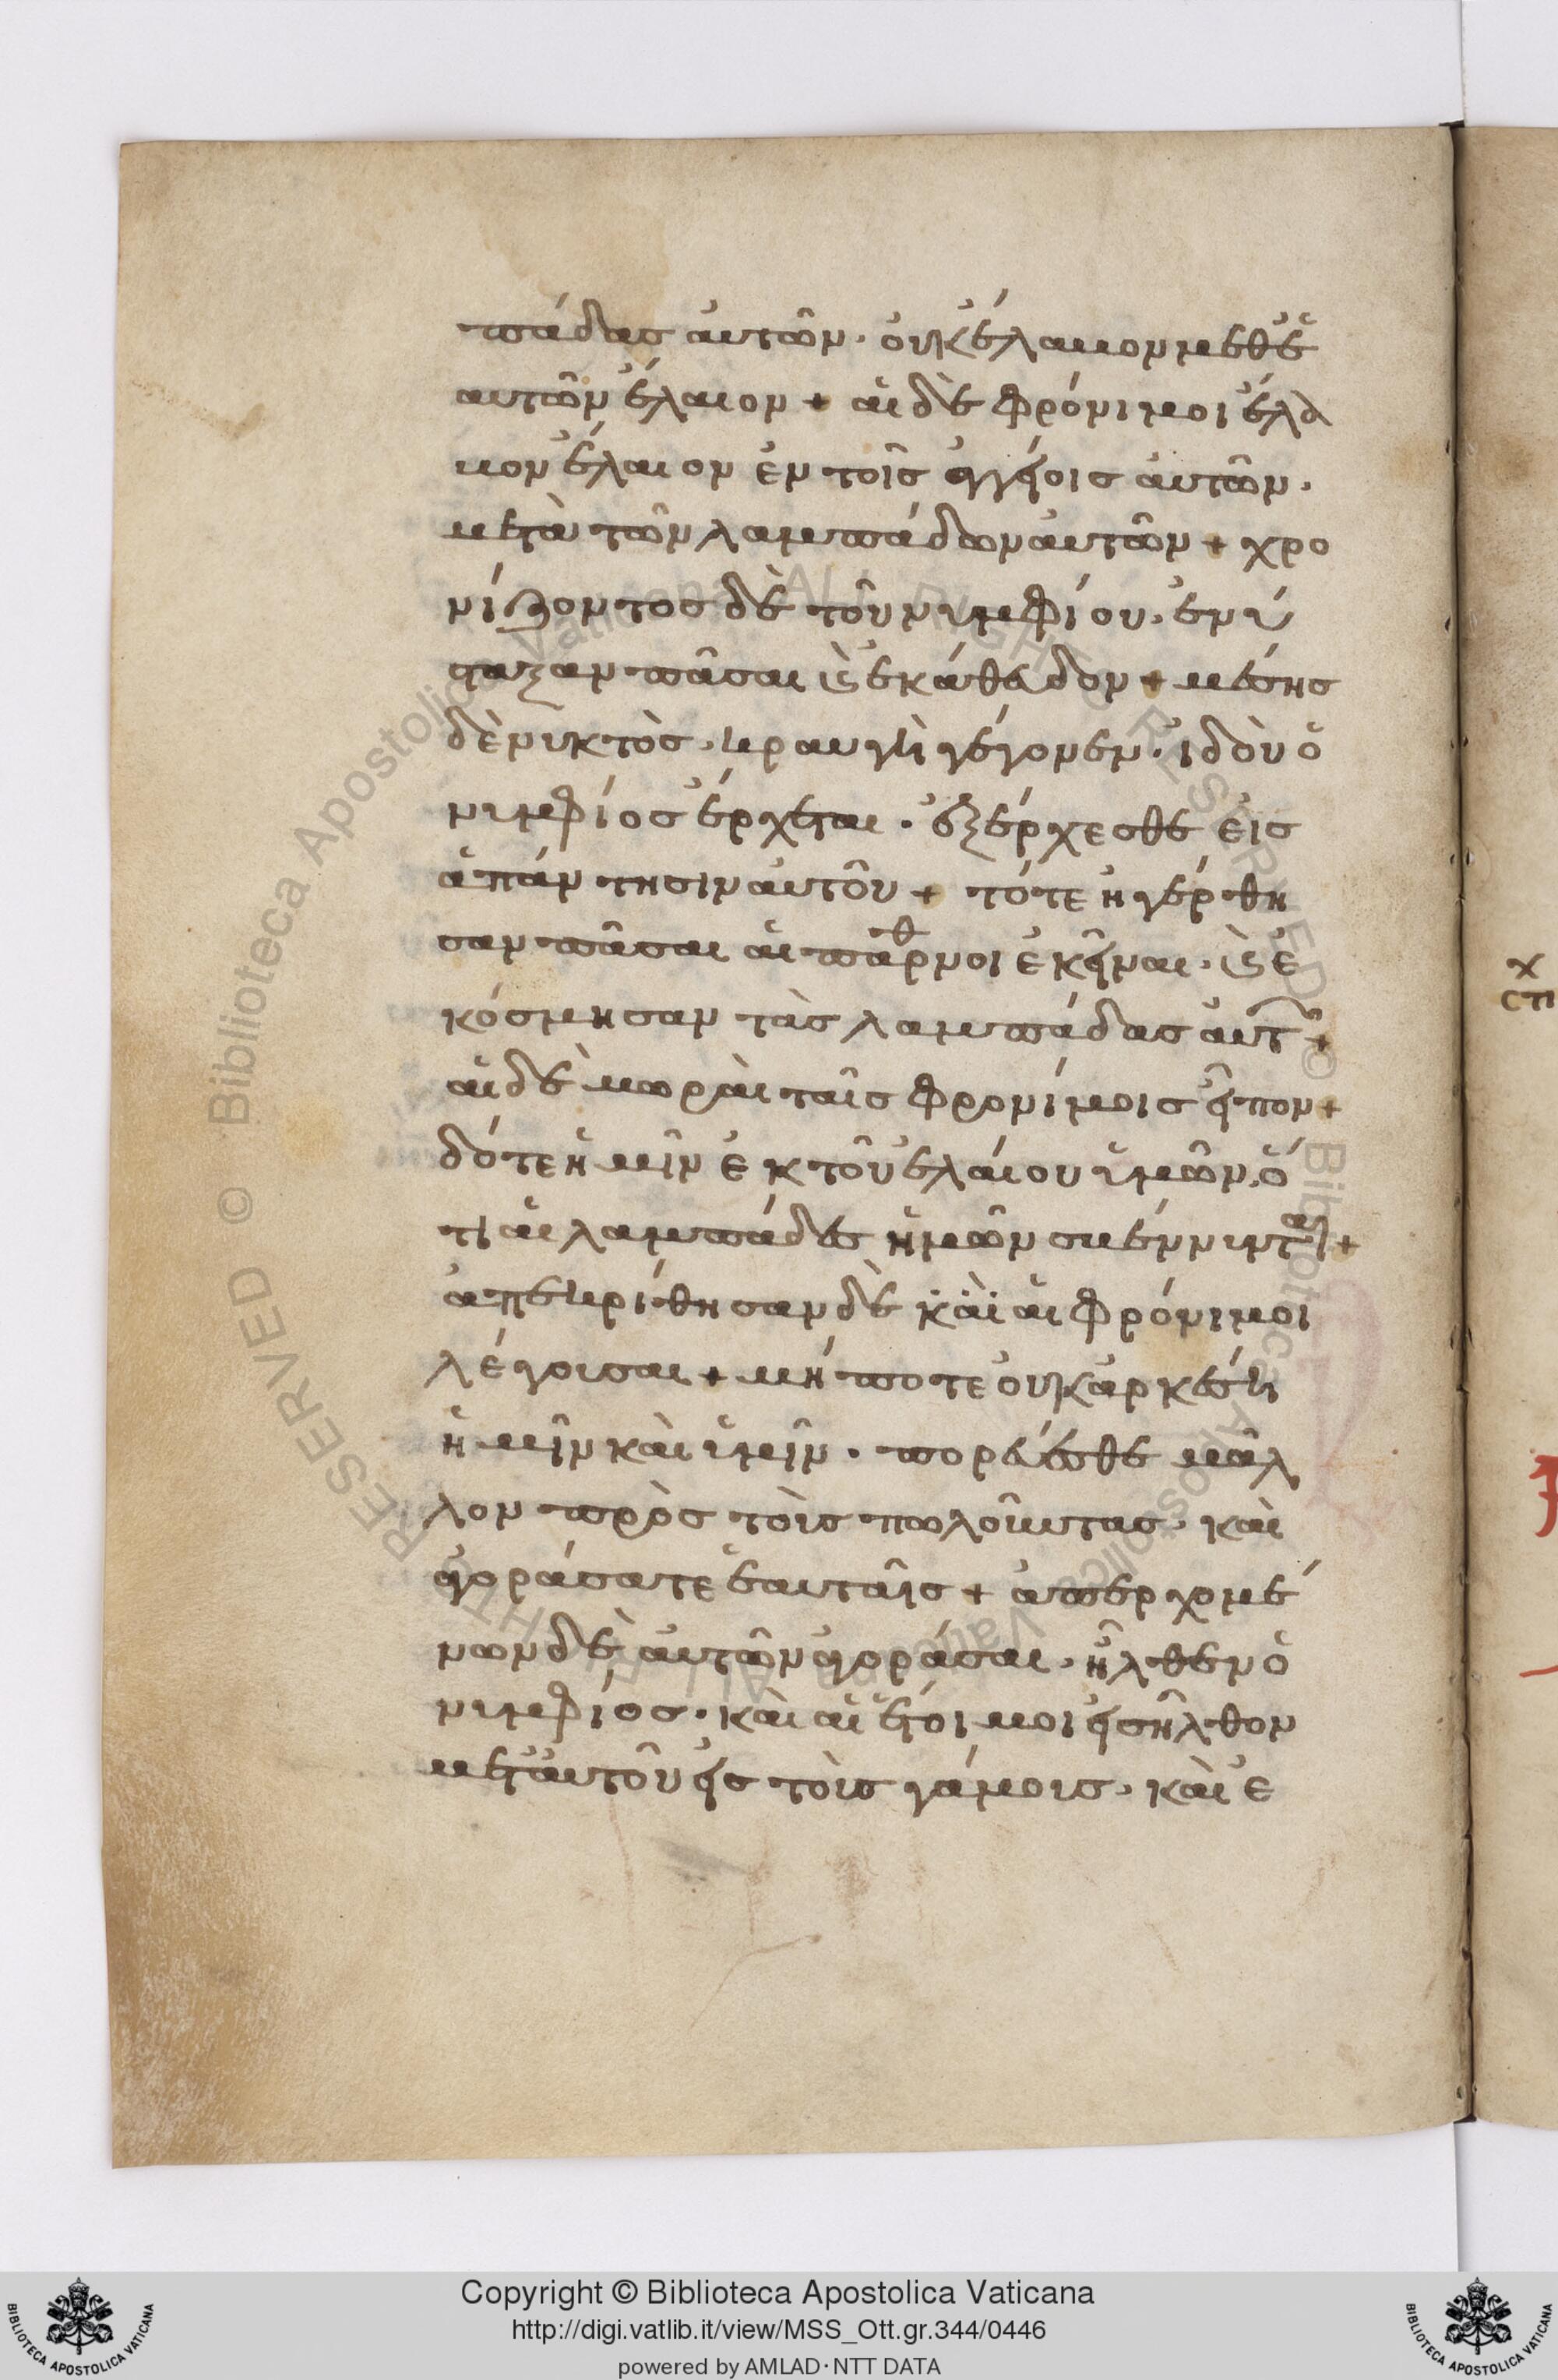 πάδας ἀυτῶν· ὀυκ ἔλαβον μεθἑ
αυτῶν ἔλαιον + ἁι δὲ φρόνιμοι ἔλα
βον ἔλαιον ἐν τοῖς ἀγγείοις ἀυτῶν·
μετὰ τῶν λαμπάδων ἀυτῶν + χρο
νίζοντος δὲ τοῦ νυμφίου· ἐνύ
σταξαν πᾶσαι ϗ ἐκάθευδον + μέσης
δὲ νυκτὸς· κραυγὴ γέγονεν· ιδοὺ ὁ
νυμφίος ἔρχεται· ἐξέρχεσθε εἰς
ἁπάντησιν ἀυτοῦ + τότε ηγέρθη
σαν πᾶσαι ἁι παρθνοι ἐκεῖναι· ϗ ἐ
κόσμησαν τὰς λαμπάδας ἀυτῶν +
ἁι δὲ μωραὶ ταῖς φρονίμοις εἶπον +
δότε ἡμῖν ἐκ τοῦ ἐλάιου ὑμῶν· ὅ
τι ἁι λαμπάδες ἡμῶν σβέννυνται +
ἀπεκρίθησαν δὲ κὰι ἁι φρόνιμοι
λέγουσαι + μήποτε ὀυκ ἀρκέση
ἡμῖν κὰι ὑμῖν· πορέυεσθε μᾶλ
λον πρὸς τοὺς πωλοῦντας· κὰι
ἀγοράσατε ἑαυταῖς + ἀπερχομέ
νων δὲ ἀυτῶν ἀγοράσαι· ἦλθεν ὁ
νυμφίος· κὰι ἁι ἕτοιμοι εἰσῆλθον
μετ ἀυτοῦ εἰς τοὺς γάμους· κὰι ἐ
Copyright © Biblioteca Apostolica Vaticana
http://digi.vatlib.it/view/MSS_Ott.gr.344/0446
powered by AMLAD·NTT DATA